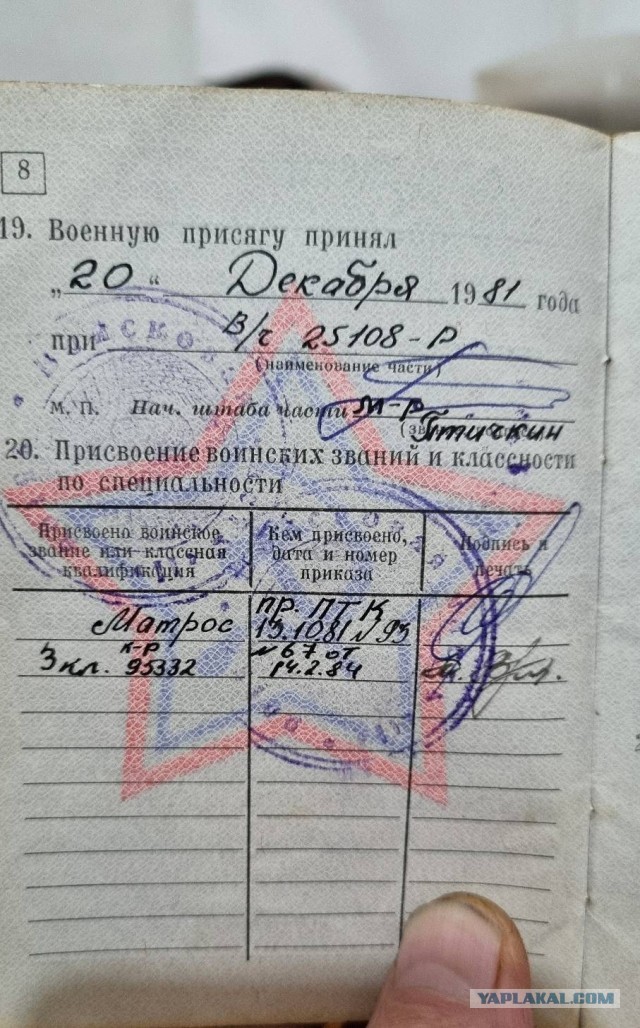 8
19. Военную присягу принял
„ 20 “ Декабря 1981 года
при в/ч 25108-Р
(наименование части)
М. П. Нач. штаба части м-р
Птичкин
20. Присвоение воинских званий и классности
по специальности
Присвоено воинское звание или классная квалификация
Кем присвоено, дата и номер приказа
Подпись и печать
Матрос
пр. ПТК
13.10 81 N 93
3 кл. к-р 95332
N 67 от
14.2.84
YAPLAKAL.COM